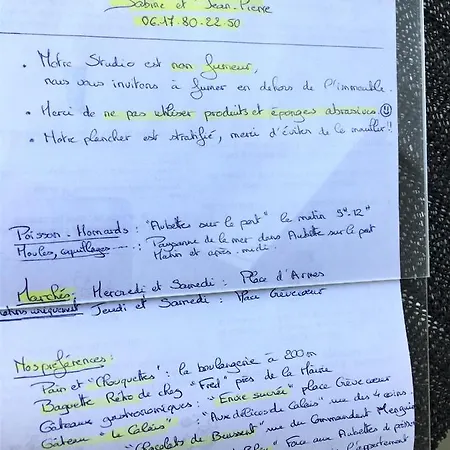 Sabine et Jean-Pierre
06.17.80.22.50
• Notre Studio est non fumeur,
nous vous invitons à fumer en dehors de l'immeuble.
• Merci de ne pas utiliser produits et éponges abrasives
• Notre plancher est stratifié, merci d'éviter de le mouiller!!
Poisson - Homards : "Aubettes sur le port" le matin 9h-12h
Moules, coquillages ---- : Paysanne de la mer dans Aubette sur le port
Matin et après-midi.
Marchés : Mercredi et Samedi : Place d'Armes
matins uniquement Jeudi et Samedi : Place Crèvecoeur
Nos préférences :
Pain et "Chouquettes" : la boulangerie à 200m
Baguette Rétro de chez "Fred" près de la Mairie
Gâteaux gastronomiques : "Entre sucrée" place Crèvecoeur
Gâteau "le Calais" : "Aux délices du Calais" rue des 4 coins.
"Chocolats de Beussent" rue du Commandant Mengin
Face aux Aubettes à poisson
l'appartement